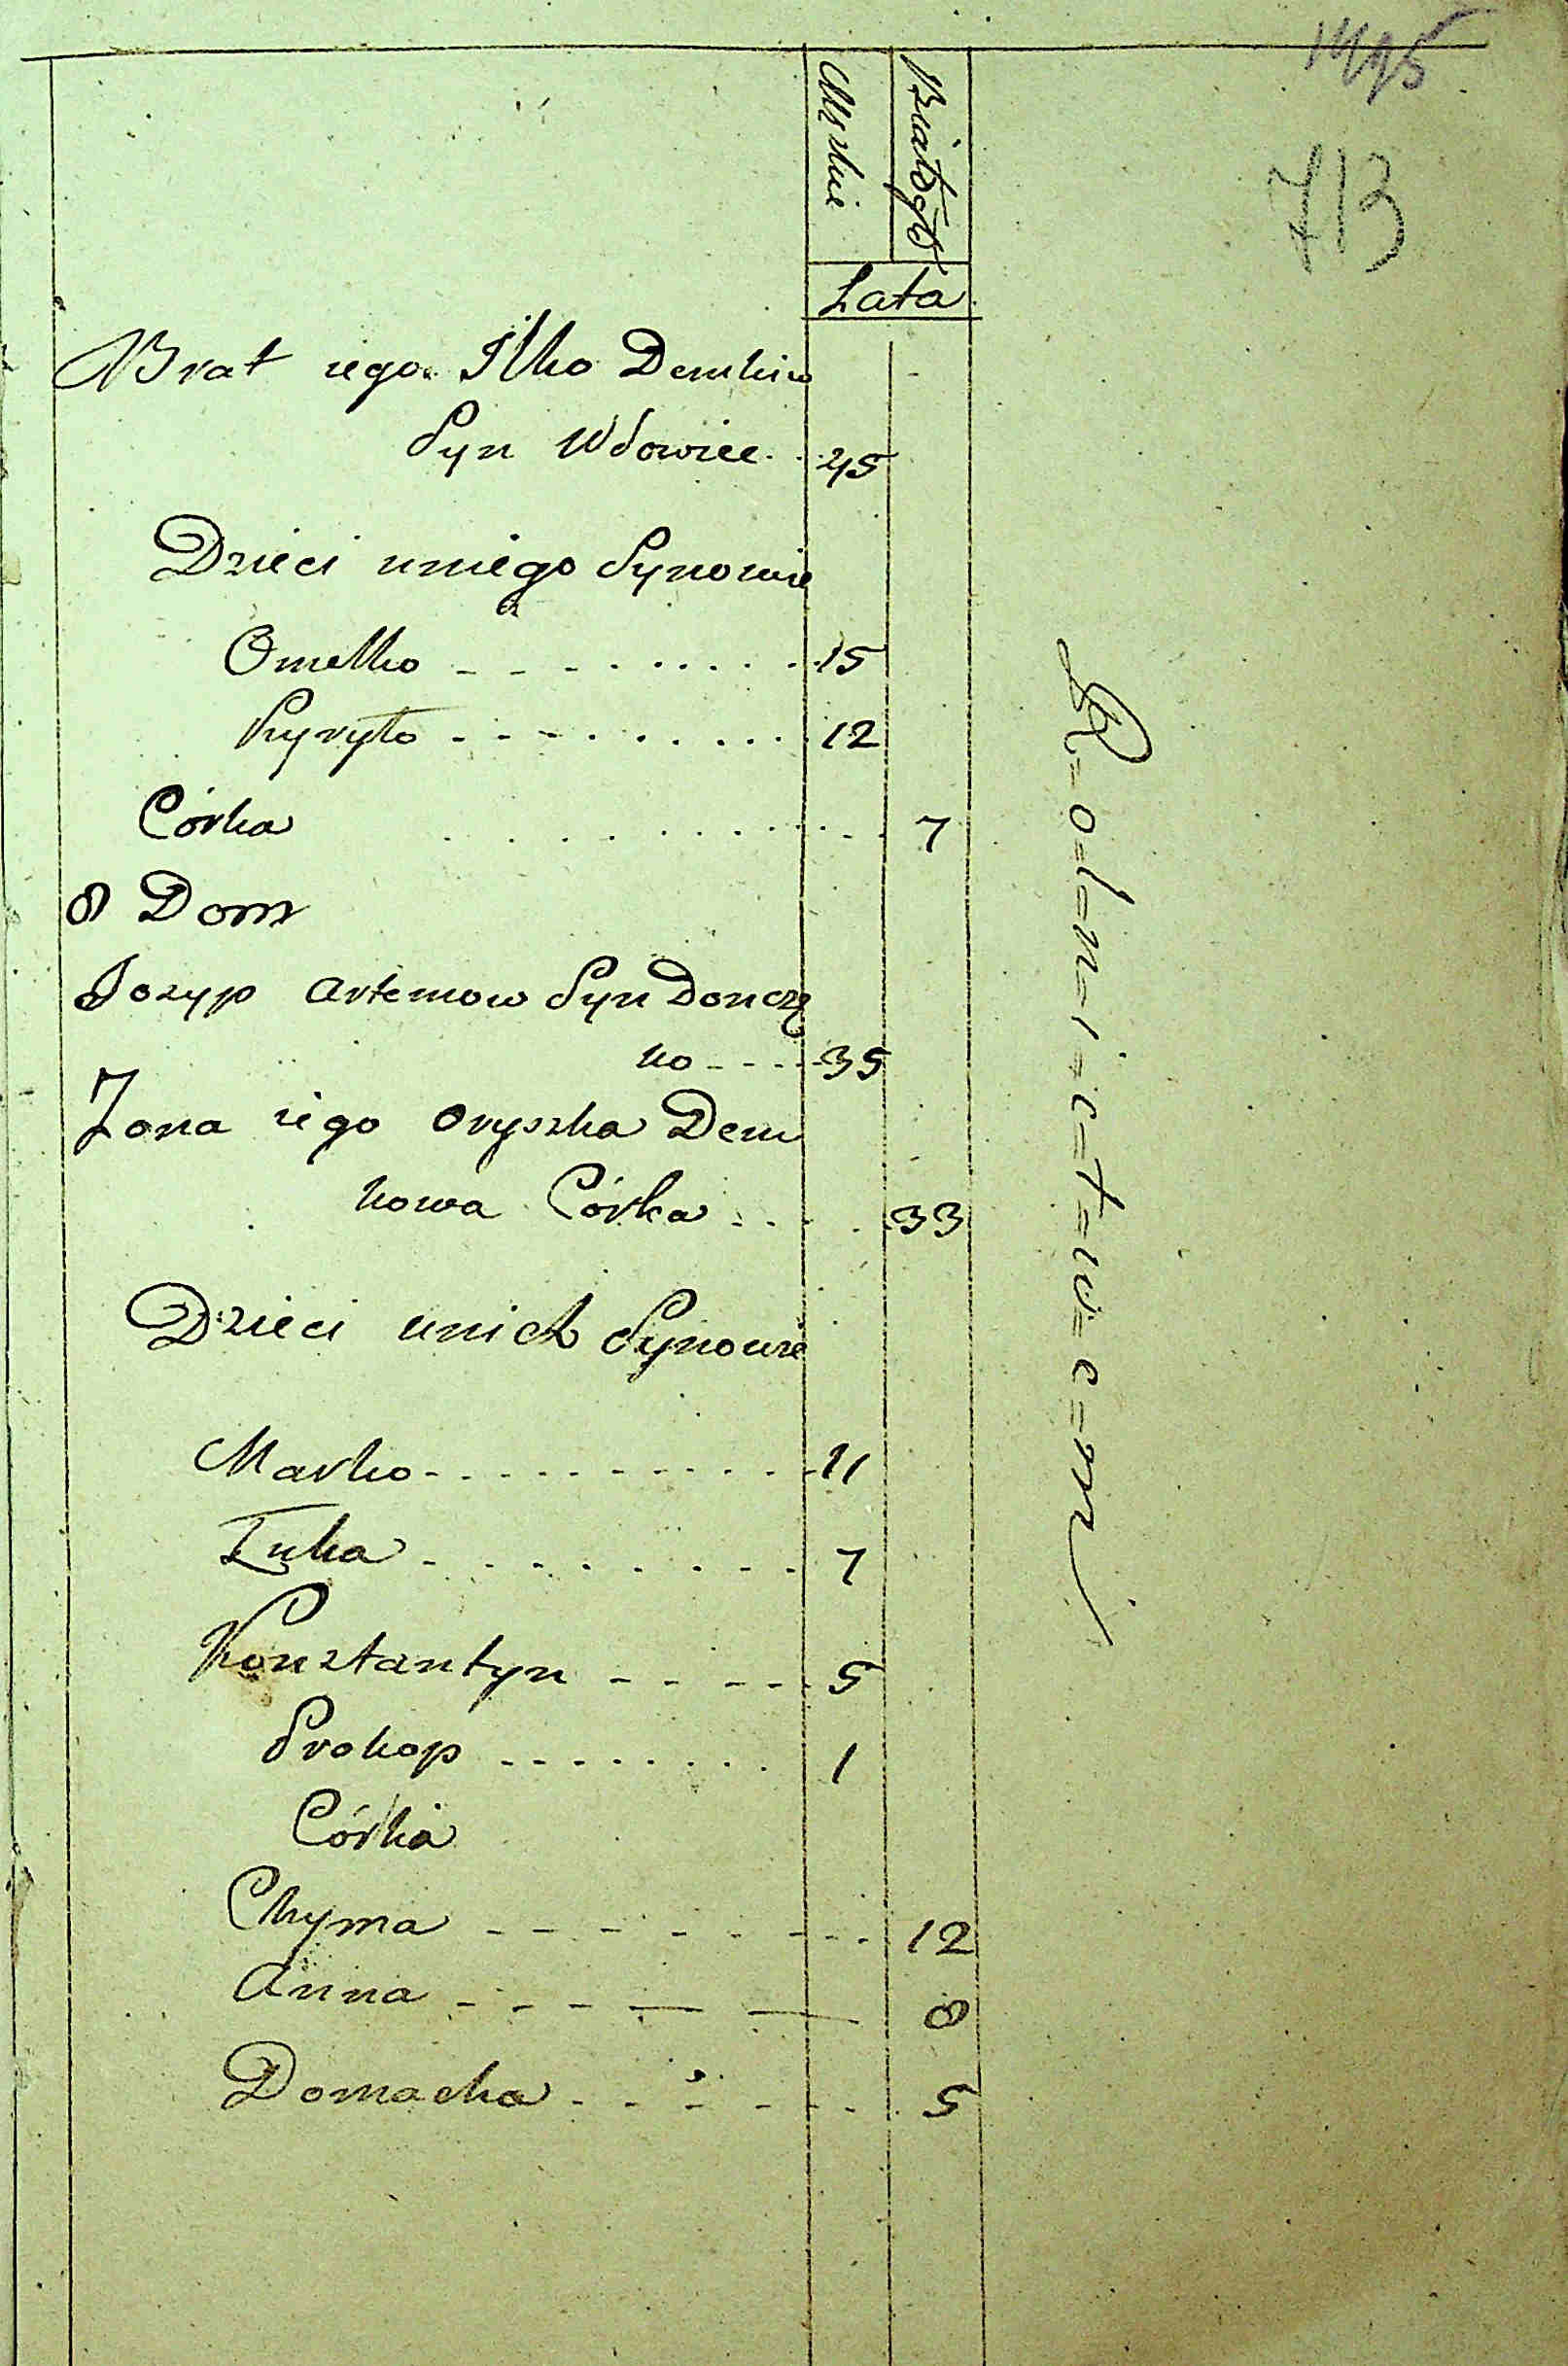 713
Męskie
Białogło
Lata
Brat iego Ilko Demkiw
Syn Wdowiec . . 45
Dzieci uniego Synowie
Omelko - - - - . . . . . 15
Kyryło - - - - . . . . . 12
Córka . . . . . . . . . . 7
8 Dom
Jozyp Artemow Syn Doncze
ko - - - - 35
Zona iego Oryszka Dem
kowa Córka . . . . 33
Dzieci unich Synowie
Marko - - - - - - - - - 11
Łuka - - - - - - - - 7
Konstantyn - - - - - 5
Prokop - - - - - - - . 1
Córka
Chyma - - - - - - - - 12
Anna - - - — — 8
Domacha - - - - - - - 5
R=o=l=n=i=c=t=w=e=m